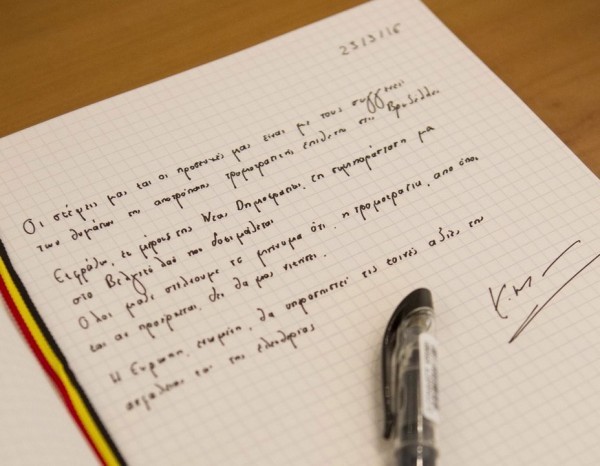 23/3/16
Οι σκέψεις μας και οι προσευχές μας είναι με τους συγγενείς
των θυμάτων της αποτρόπαιης τρομοκρατικής επίθεσης στις Βρυξέλλες
Εκφράζω, εκ μέρους της Νέας Δημοκρατίας, τη συμπαράστασή μας
στο Βελγικό λαό που δοκιμάζεται.
Όλοι μαζί στέλνουμε το μήνυμα ότι η τρομοκρατία, από όπου
και αν προέρχεται, δεν θα μας νικήσει.
Η Ευρώπη, ενωμένη, θα υπερασπιστεί τις κοινές αξίες της
ασφάλειας και της ελευθερίας.
Κ.Μ